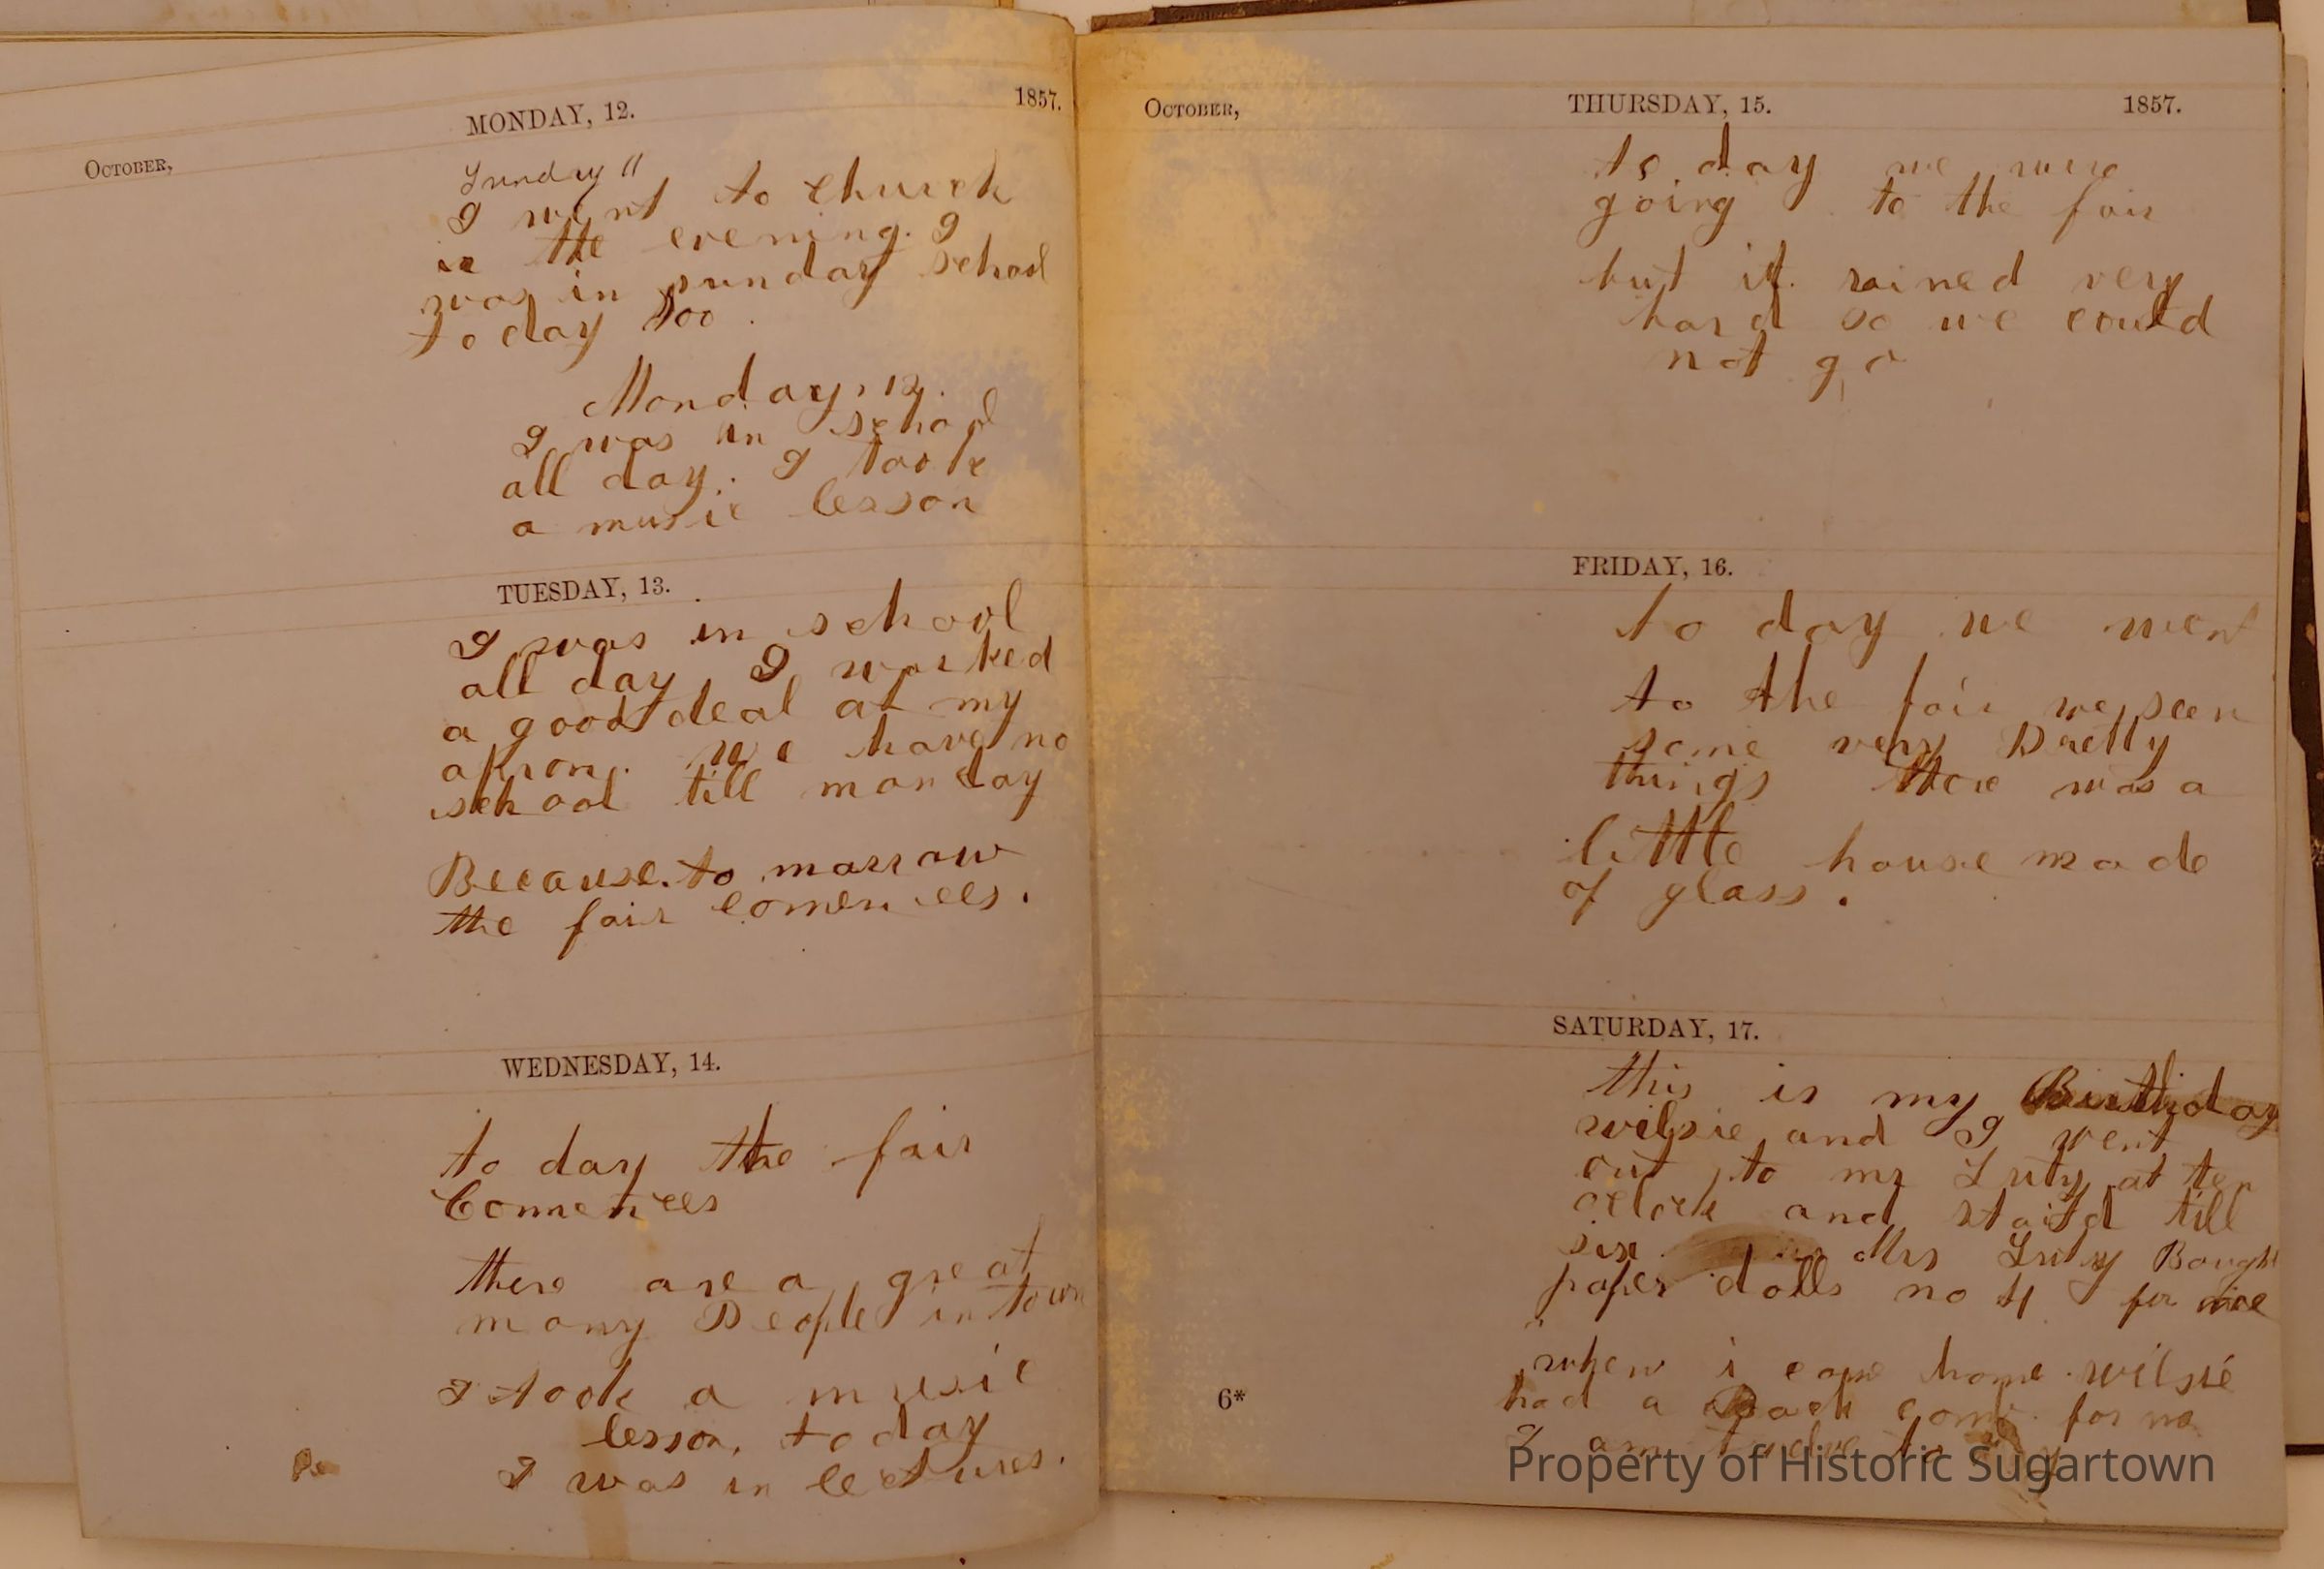 MONDAY, 12.
1857.
OCTOBER,
Sunday 11
I went to church
in the evening. I
was in sunday school
to day too.
Monday, 12.
I was in school
all day. I took
a music lesson
TUESDAY, 13.
I was in school
all day I worked
a good deal at my
apron. we have no
school till monday
Because to marrow
the fair comences.
WEDNESDAY, 14.
to day the fair
Comences
there are a great
many People in town
I took a music
lesson, to day
I was in lectures.
OCTOBER,
THURSDAY, 15.
1857.
to day we were
going to the fair
but it rained very
hard so we could
not go
FRIDAY, 16.
to day we went
to the fair we seen
some very Pretty
things there was a
little house made
of glass.
SATURDAY, 17.
this is my Birthday
wilsie and I went
out to mr Luty at ten
oclock and staid till
six Mrs Luty Bought
paper dolls no 4 for
when i came home wilsie
had a Back comb for me
I am twelve to
6*
Property of Historic Sugartown